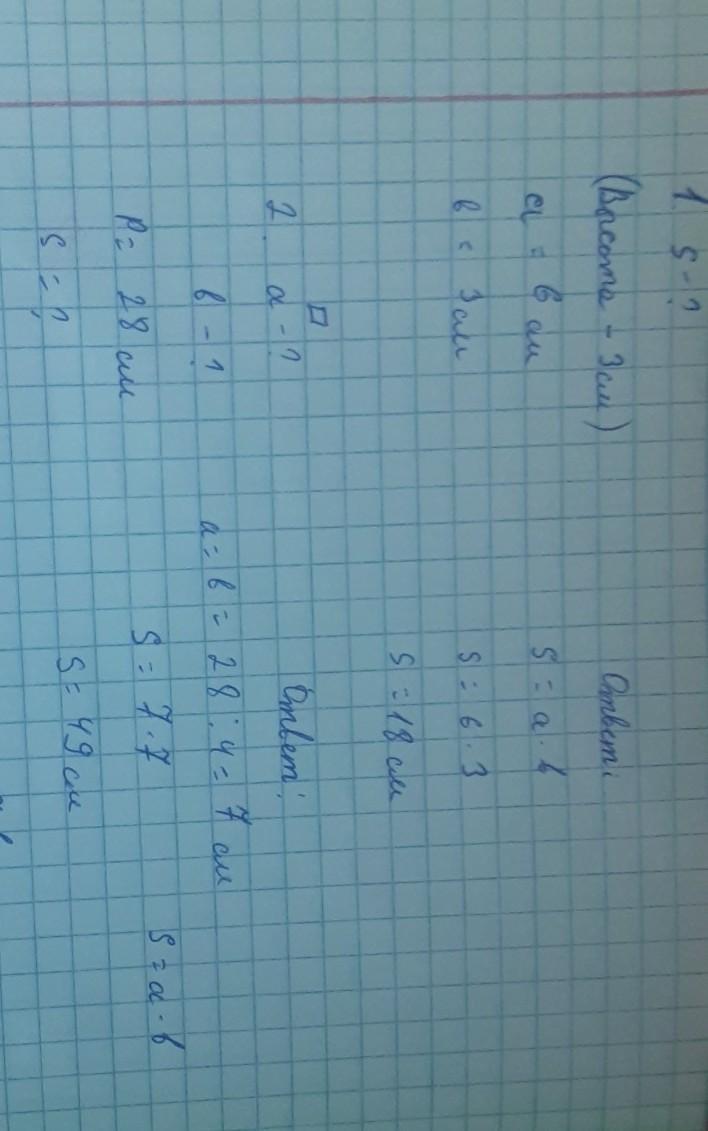 1. S - ?
(Высота - 3 см)
a = 6 см
b = 3 см
Ответ:
S = a · b
S = 6 · 3
S = 18 см
2. a - ?
b - ?
P = 28 см
S = ?
Ответ:
a = b = 28 : 4 = 7 см
S = 7 · 7
S = a · b
S = 49 см